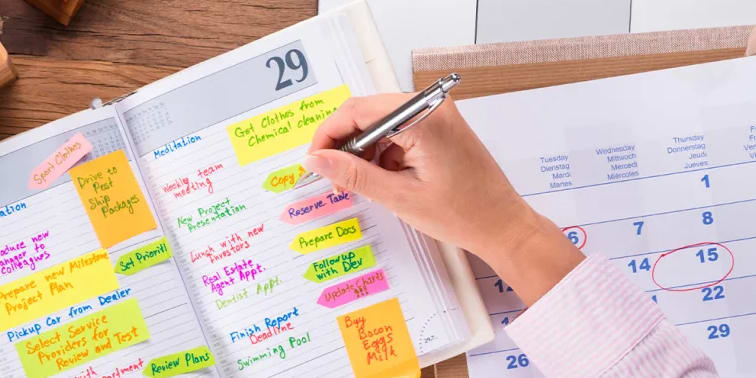 Sport Clothes
Drive to
Post
Ship
Packages
ation
Set Prioriti
colleagues
Prepare new Milestone
Project Plan
Pickup Car from Dealer
Select Service
Providers for
Review and Test
Review Plans
29
Meditation
Get Clothes from
Chemical cleaning
Weekly team
meeting
Copy
New Project
Presentation
Reserve Table
Lunch with new
Investors
Prepare Docs
Real Estate
Agent Appt.
Followup
with Dev
Dentist Appt.
Update
Finish Report
Deadline
Swimming Pool
Buy
Bacon
Eggs
Milk
Tuesday Wednesday Thursday
Dienstag Mittwoch Donnerstag
Mardi Mercredi Jeudi
Martes Miércoles Jueves
1
6 7 8
14 15
22
26 29